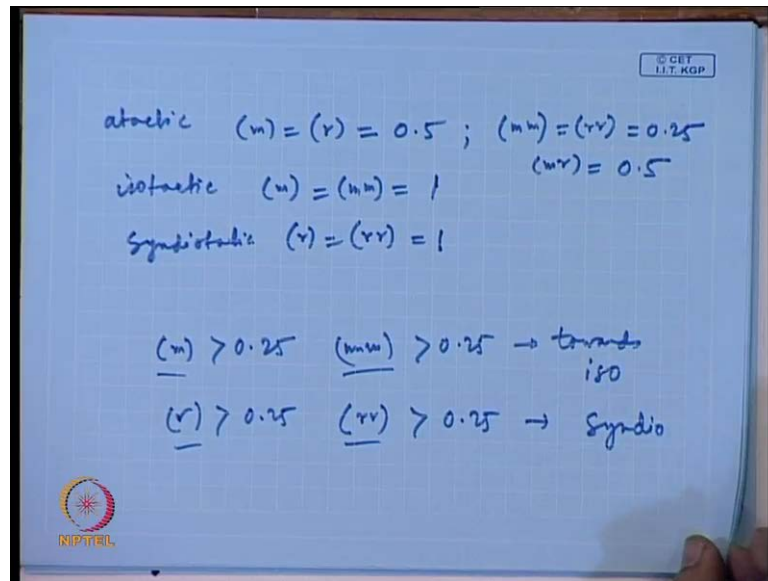 © CET
I.I.T. KGP
atactic (m) = (r) = 0.5 ; (mm) = (rr) = 0.25
(mr) = 0.5
isotactic (m) = (mm) = 1
Syndiotactic (r) = (rr) = 1
(m) > 0.25 (mm) > 0.25 → towards
iso
(r) > 0.25 (rr) > 0.25 → Syndio
NPTEL